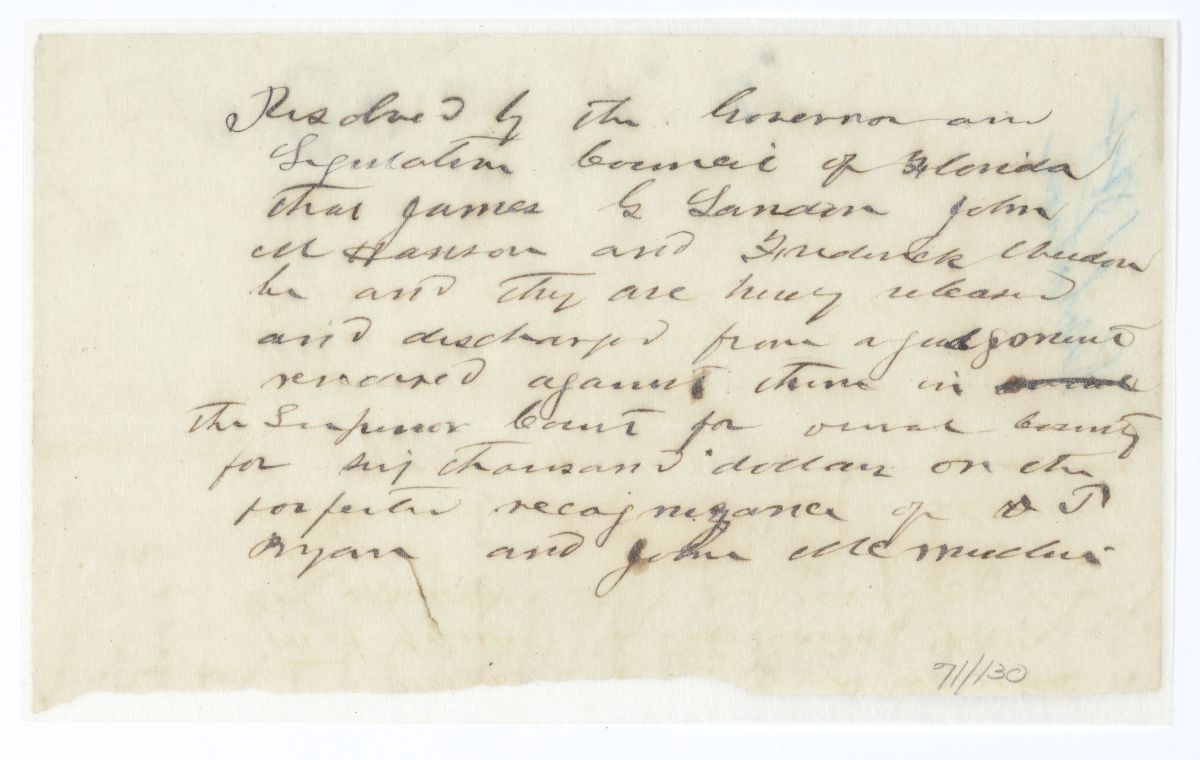 Resolved by the Governor and
Legislative Council of Florida
that James G Landon John
M Hanson and Frederick Weedon
be and they are hereby released
and discharged from a judgement
rendered against them in
the Superior Court for County
for six thousand dollars on the
forfeited recognizance of T
Ryan and John
71/130